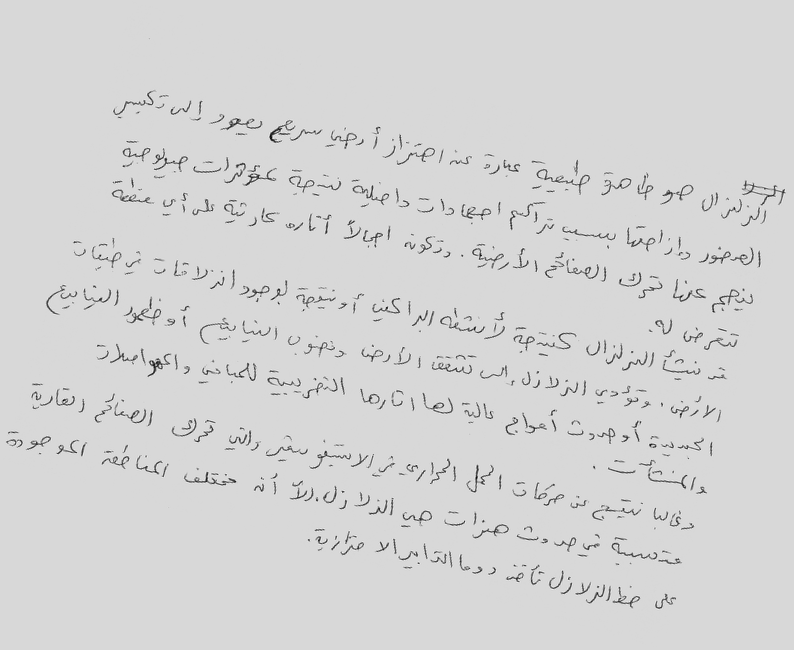 الزلزال هو ظاهرة طبيعية عبارة عن اهتزاز أرضي سريع يعود إلى تكسير
الصخور وإزاحتها بسبب تراكم اجهادات داخلية نتيجة لمؤثرات جيولوجية
ينجم عنها تحرك الصفائح الأرضية. وتكون اجمالاً أثاره كارثية على أي منطقة
تتعرض له.
قد ينشأ الزلزال كنتيجة لأنشطة البراكين أو نتيجة لوجود انزلاقات في طبقات
الأرض. وتؤدي الزلازل إلى تشقق الأرض ونضوب الينابيع أو ظهور الينابيع
الجديدة أو حدوث أمواج عالية لها اثارها التخريبية للمباني والمواصلات
والمنشآت.
وغالبا تنتج عن حركات الحمل الحراري في الاستينوسفير والتي تحرك الصفائح القارية
متسببة في حدوث هزات هي الزلازل. إلاّ أن مختلف المناطق الموجودة
على خط الزلازل تأخذ دوما التدابير الاحترازية.